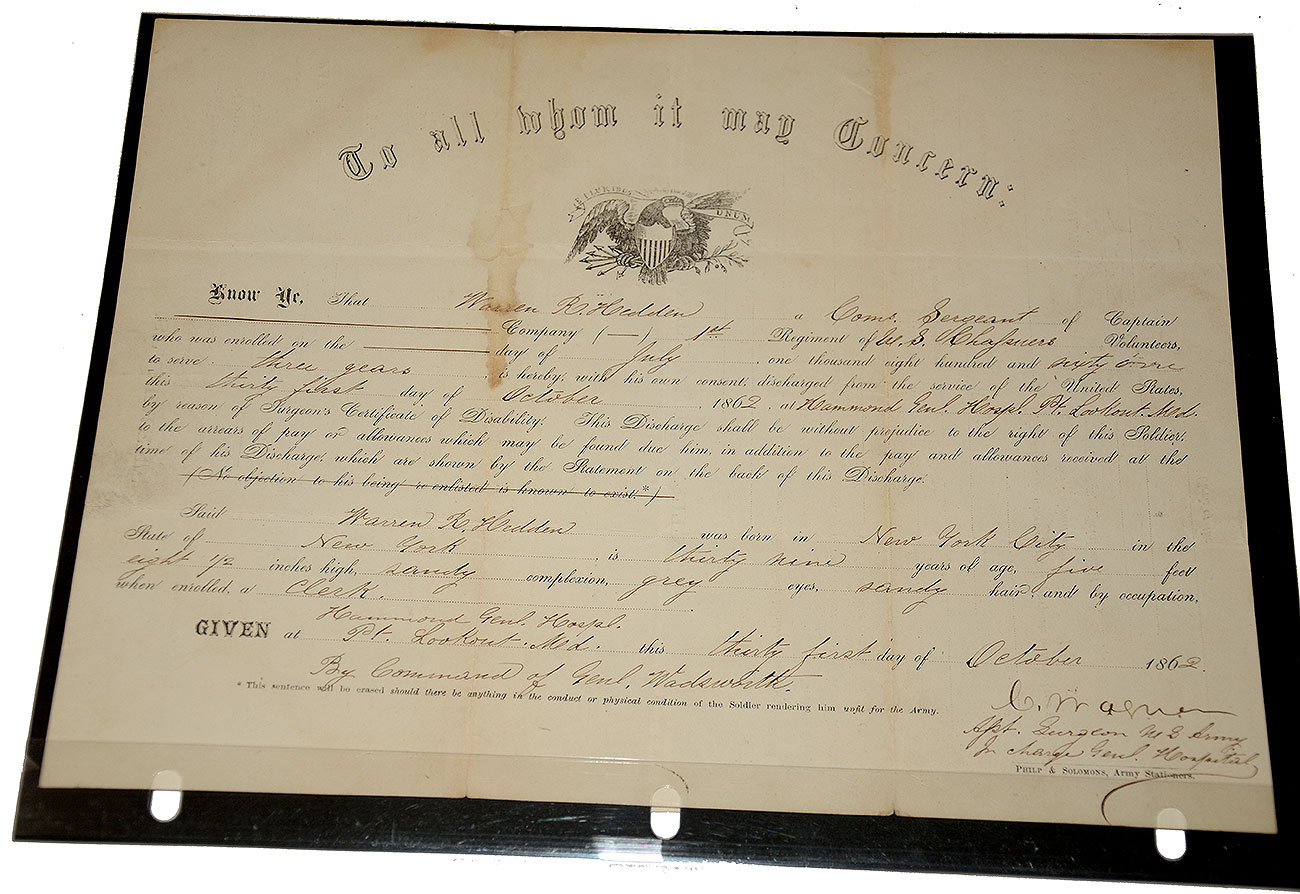 To all whom it may Concern:
E PLURIBUS UNUM
Know Ye, That Warren R. Hedden a Com. Sergeant of Captain
Company (—) 1st Regiment of U.S. Chasseurs Volunteers,
who was enrolled on the day of July one thousand eight hundred and sixty one
to serve three years is hereby, with his own consent, discharged from the service of the United States,
this thirty first day of October, 1862, at Hammond Genl. Hospl. Pt. Lookout. Md.
by reason of Surgeon's Certificate of Disability. This Discharge shall be without prejudice to the right of this Soldier,
to the arrears of pay or allowances which may be found due him, in addition to the pay and allowances received at the
time of his Discharge, which are shown by the Statement on the back of this Discharge.
(No objection to his being re-enlisted is known to exist.*)
Said Warren R. Hedden was born in New York City in the
State of New York, is thirty nine years of age, five feet
eight 1/2 inches high, sandy complexion, grey eyes, sandy hair, and by occupation,
when enrolled, a Clerk.
Hammond Genl. Hospl.
GIVEN at Pt. Lookout. Md. this thirty first day of October 1862.
By Command of Genl. Wadsworth.
* This sentence will be erased should there be anything in the conduct or physical condition of the Soldier rendering him unfit for the Army.
C. Wagner
Asst. Surgeon U S Army
In charge Genl. Hospital
PHILP & SOLOMONS, Army Stationers.